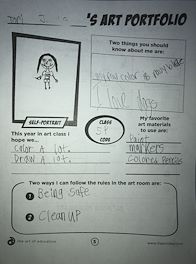 'S ART PORTFOLIO
Two things you should
know about me are:
my fav color is
I love dogs
SELF-PORTRAIT
CLASS
5P
CODE
My favorite
art materials
to use are:
This year in art class I
hope we...
Color A lot.
Draw A lot.
Paint
markers
Colored Pencils
Two ways I can follow the rules in the art room are:
1 Being safe
2 Clean up
the art of education